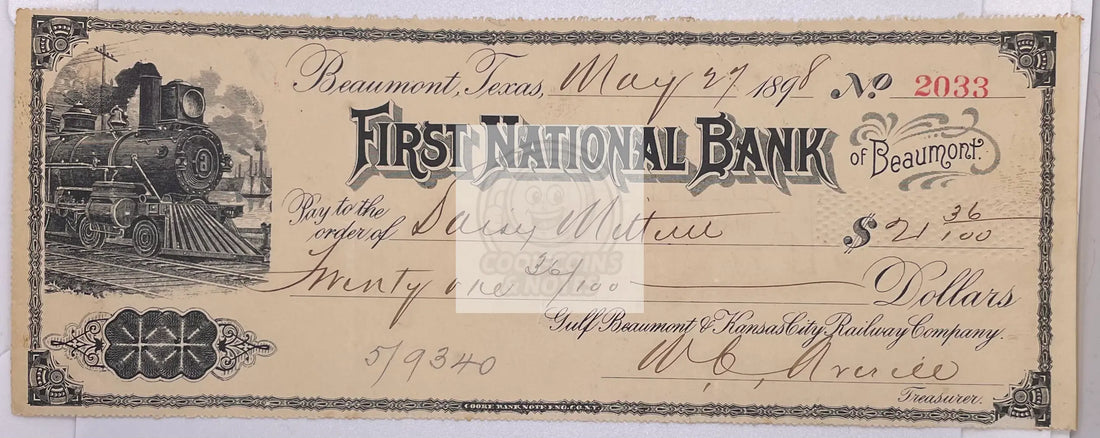 Beaumont, Texas, May 27 1898 No. 2033
FIRST NATIONAL BANK of Beaumont.
Pay to the order of Daisy $ 21 36/100
Twenty one 36/100 Dollars
Gulf Beaumont & Kansas City Railway Company.
5/9340
W. C. Averill
Treasurer.
COOKE BANK NOTE ENG. CO. N.Y.